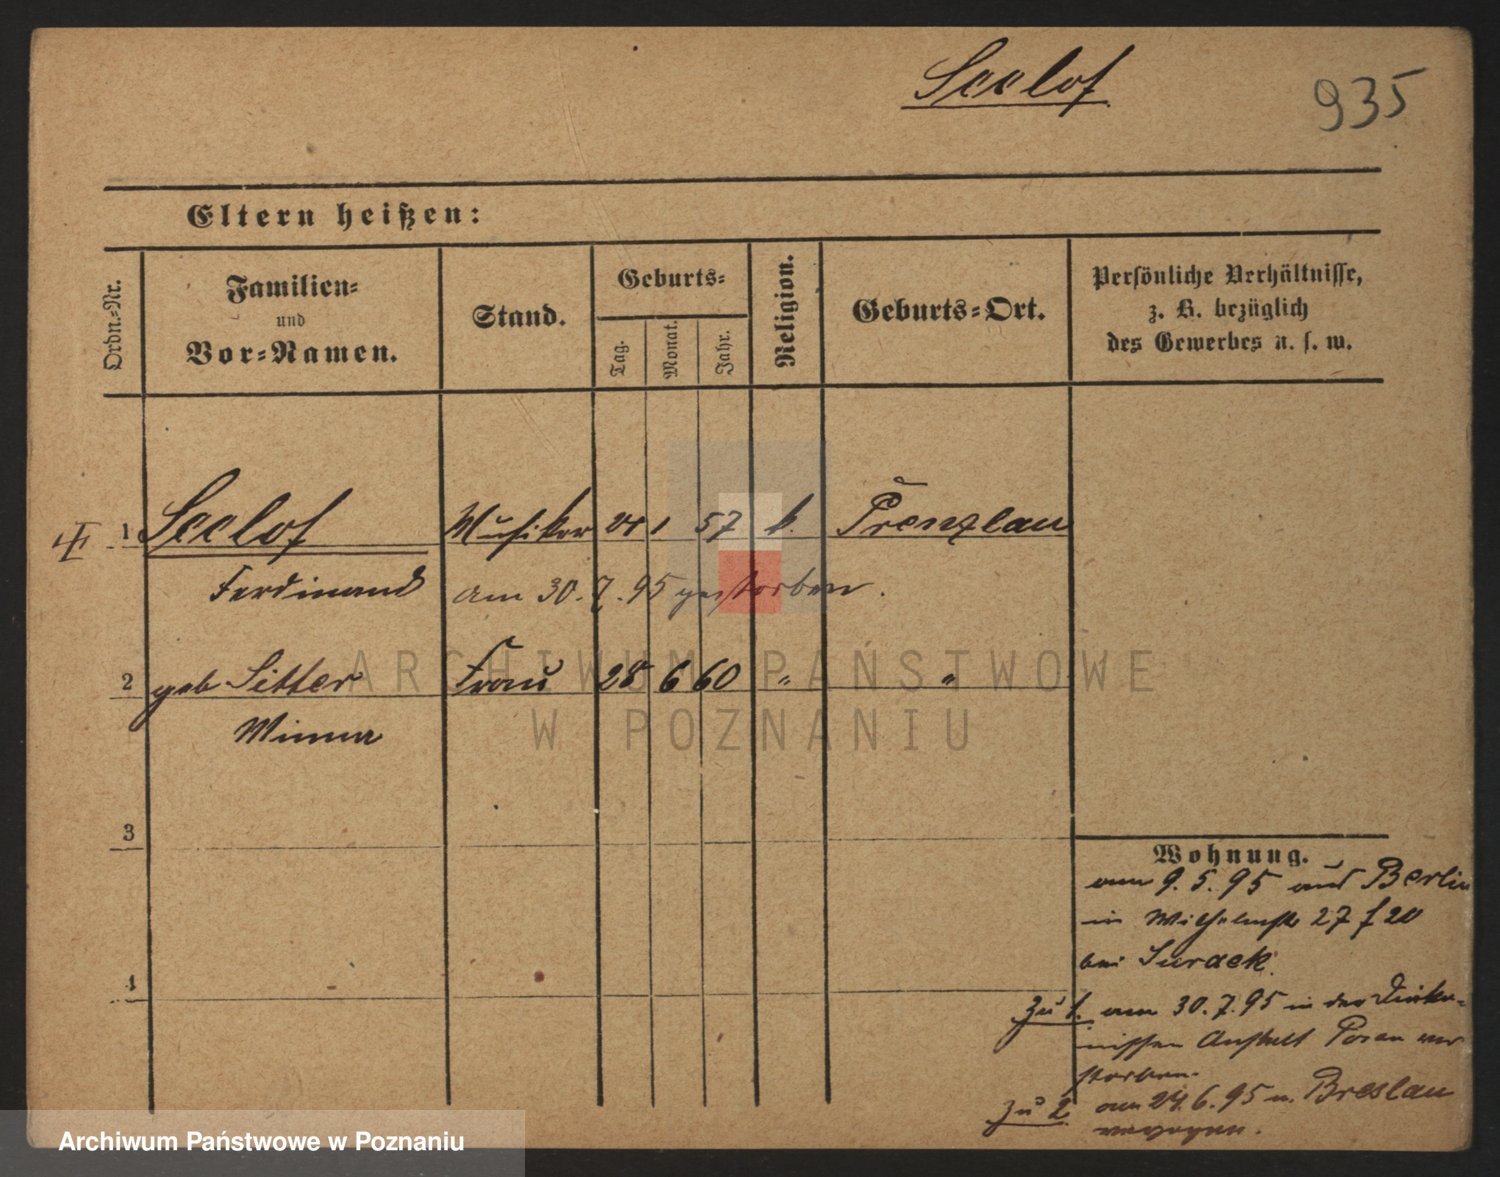 Seelof
935
Eltern heißen:
Ordn.-Nr.
Familien-
und
Vor-Namen.
Stand.
Geburts-
Tag.
Monat.
Jahr.
Religion.
Geburts-Ort.
Persönliche Verhältnisse,
z. B. bezüglich
des Gewerbes u. s. w.
1 Seelof Musiker 24 1 57 k. Prenzlau
Ferdinand am 30. 7. 95 gestorben.
2 geb Sitter Frau 28 6 60 " "
Minna
3
4
Wohnung.
am 9. 5. 95 aus Berlin
in Wilhelmstr 27 f 20
bei Surack.
zu 1. am 30. 7. 95 in der Diako-
nissen Anstalt Posen ver
storben.
zu 2 am 24. 6. 95 n. Breslau
verzogen.
ARCHIWUM PAŃSTWOWE
W POZNANIU
Archiwum Państwowe w Poznaniu